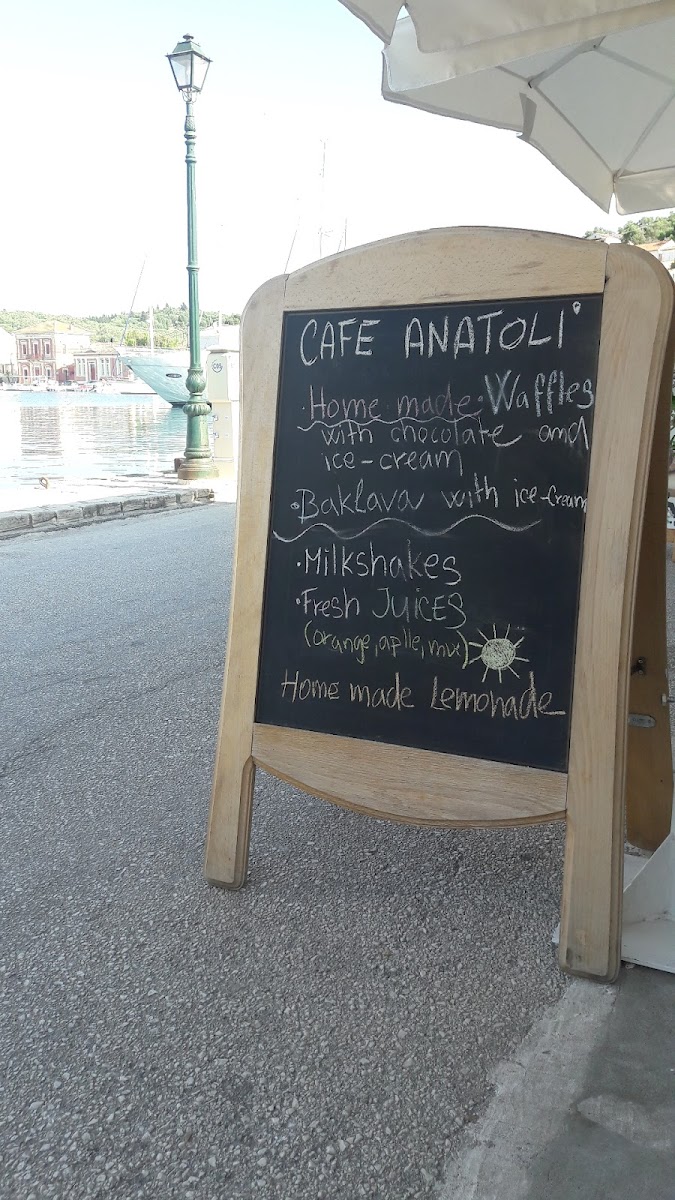 CAFE ANATOLI
· Home made · Waffles
with chocolate and
ice-cream
· Baklava with ice-cream
· Milkshakes
· Fresh JUICES
(orange, aplle, mix)
Home made Lemonade